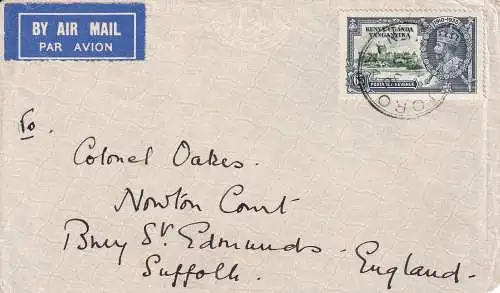 BY AIR MAIL
PAR AVION
1910-1935
KENYA·UGANDA
TANGANYIKA
POSTAGE REVENUE
TORO
To.
Colonel Oakes.
Nowton Court
Bury St. Edmunds.
Suffolk. England.